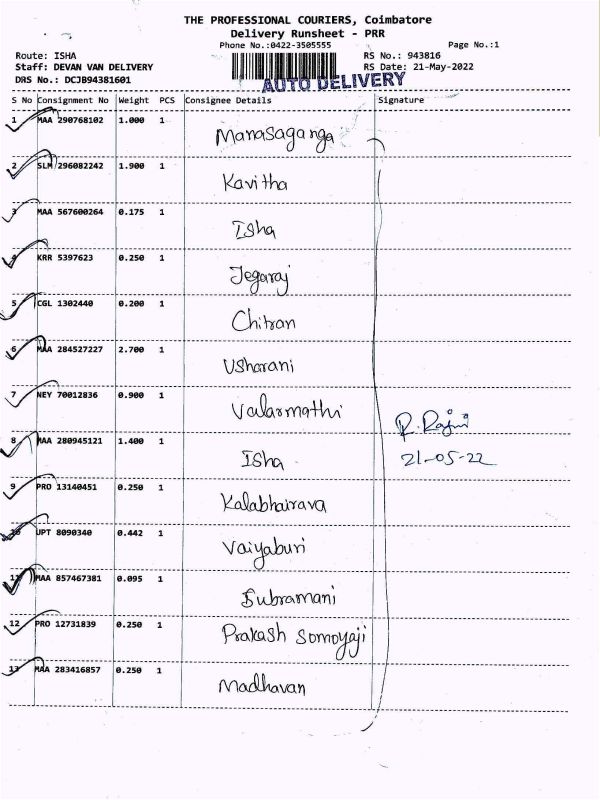 THE PROFESSIONAL COURIERS, Coimbatore
Delivery Runsheet - PRR
Phone No.:0422-3505555 Page No.:1
Route: ISHA RS No.: 943816
Staff: DEVAN VAN DELIVERY RS Date: 21-May-2022
DRS No.: DCJB94381601 AUTO DELIVERY
S No Consignment No Weight PCS Consignee Details Signature
1 MAA 290768102 1.000 1
Manasaganga
2 SLM 296082242 1.900 1
Kavitha
3 MAA 567600264 0.175 1
Isha
4 KRR 5397623 0.250 1
Jegaraj
5 CGL 1302440 0.200 1
Chitran
6 MAA 284527227 2.700 1
Usharani
7 NEY 70012836 0.900 1
Valarmathi
R. Rajni
8 MAA 280945121 1.400 1
Isha 21-05-22
9 PRO 13140451 0.250 1
Kalabhairava
10 UPT 8090340 0.442 1
Vaiyaburi
11 MAA 857467381 0.095 1
Subramani
12 PRO 12731839 0.250 1
Prakash Somoyaji
13 MAA 283416857 0.250 1
Madhavan